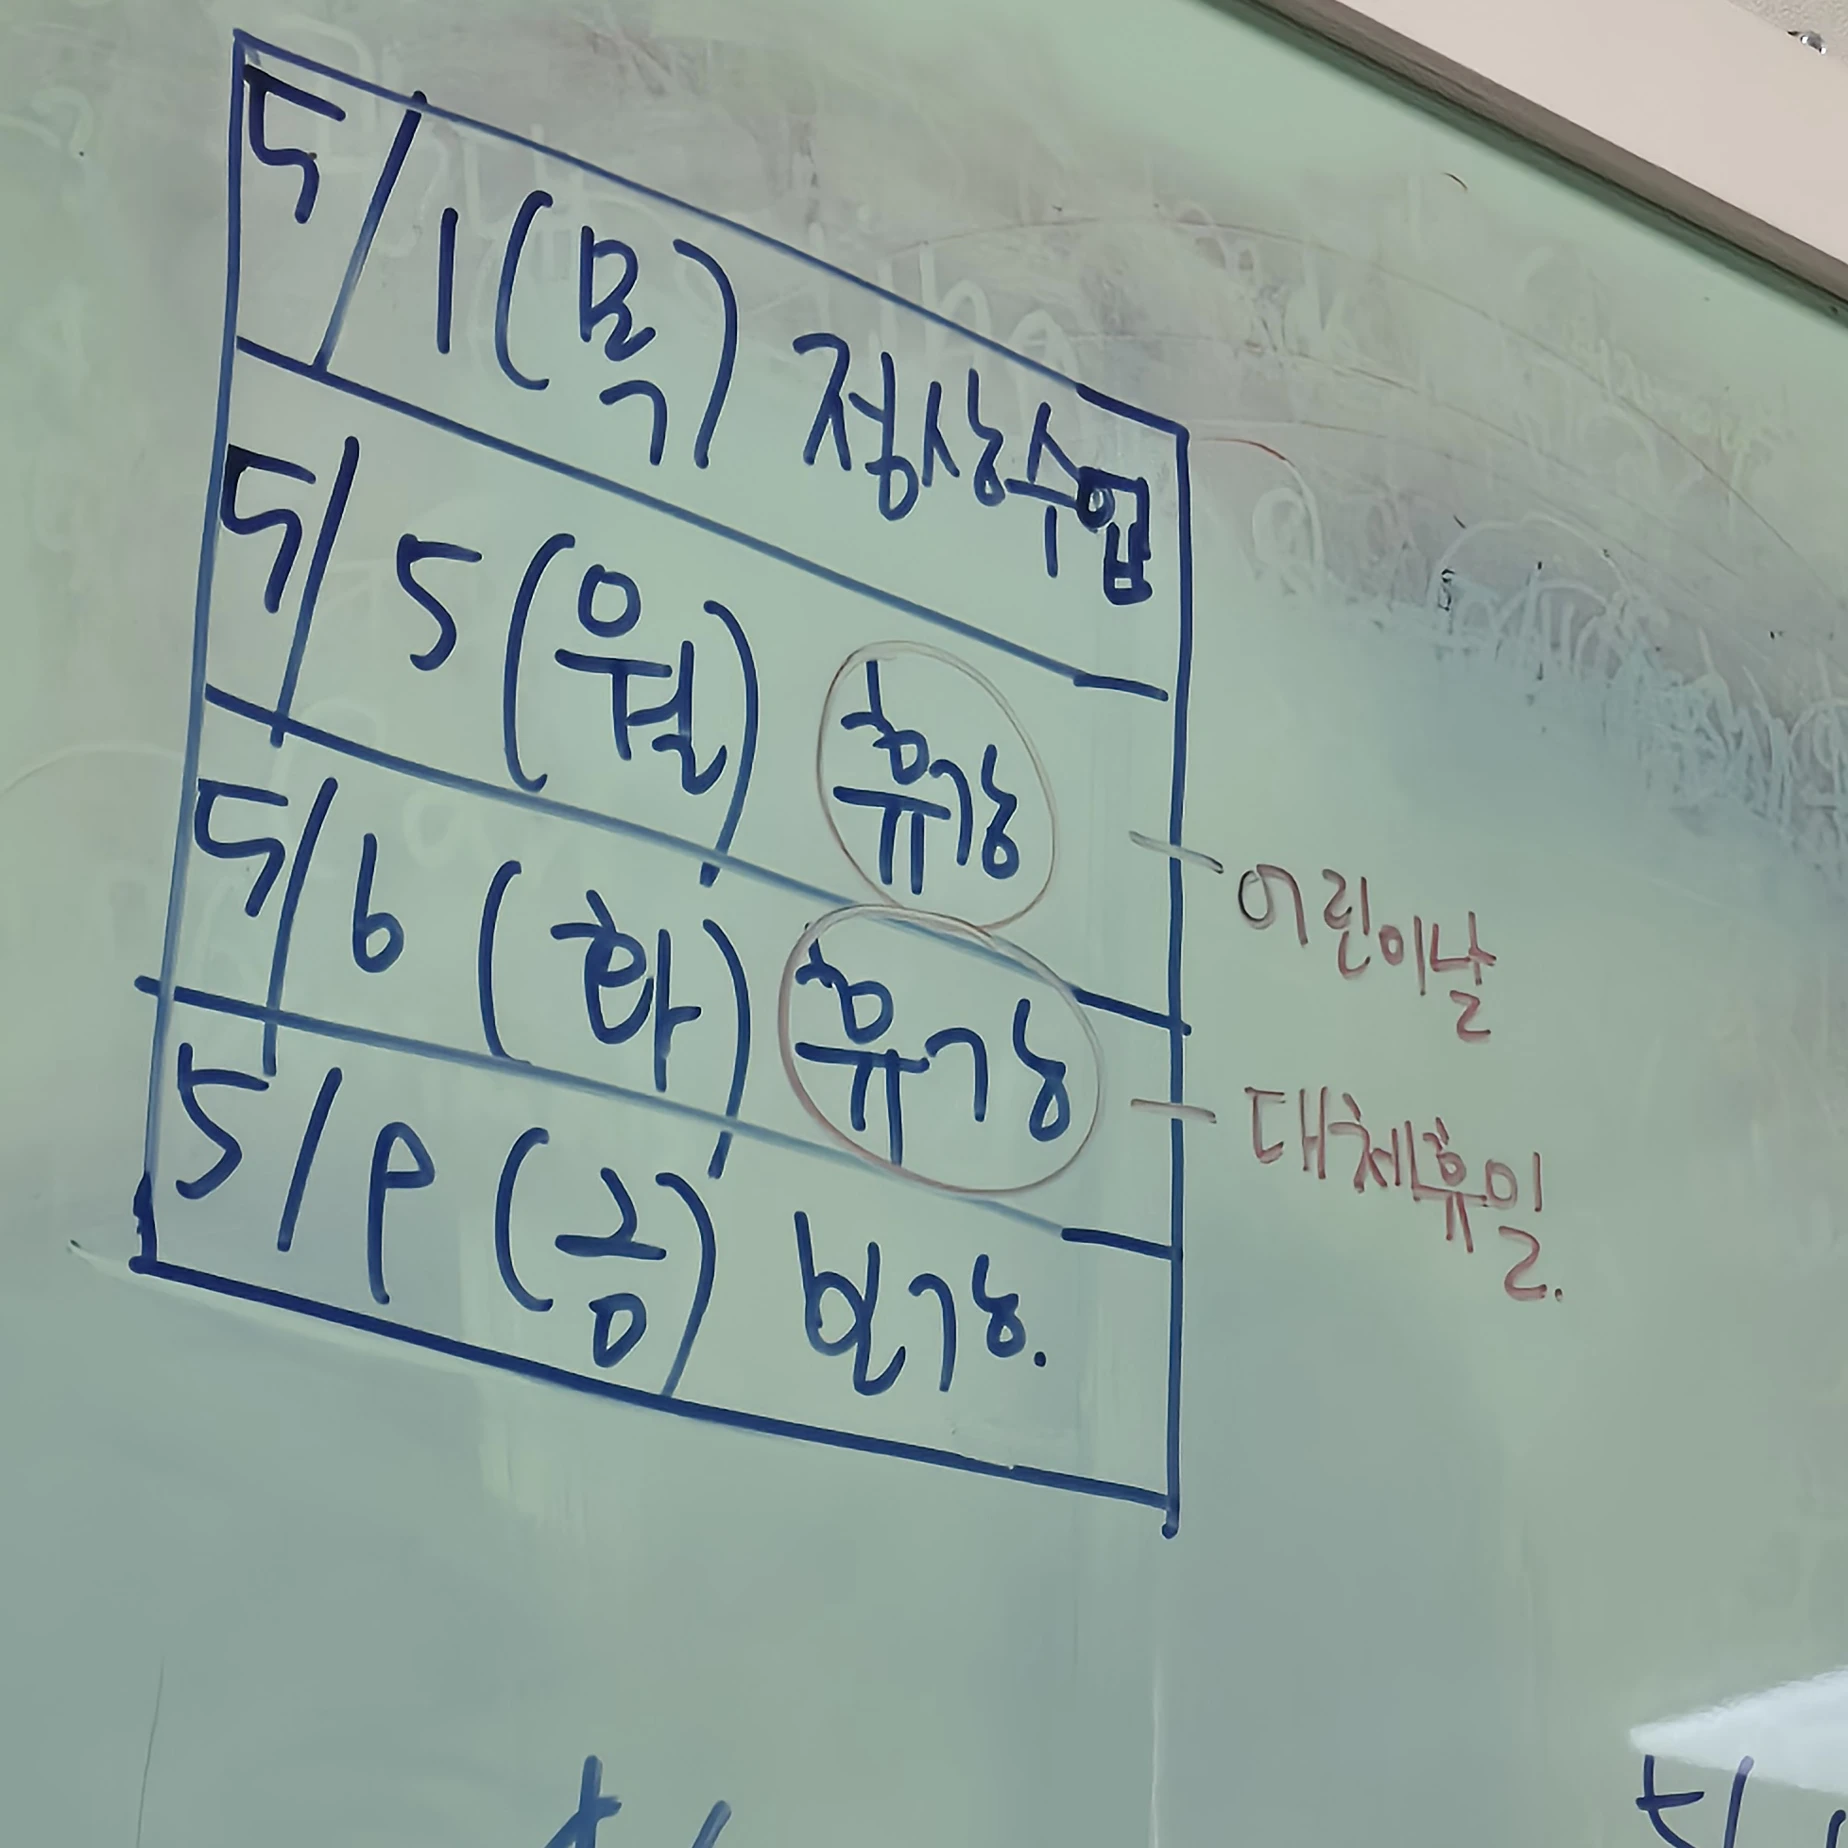 5/1 (목) 정상수업
5/5 (월) 휴강 - 어린이날
5/6 (화) 휴강 - 대체휴일.
5/9 (금)